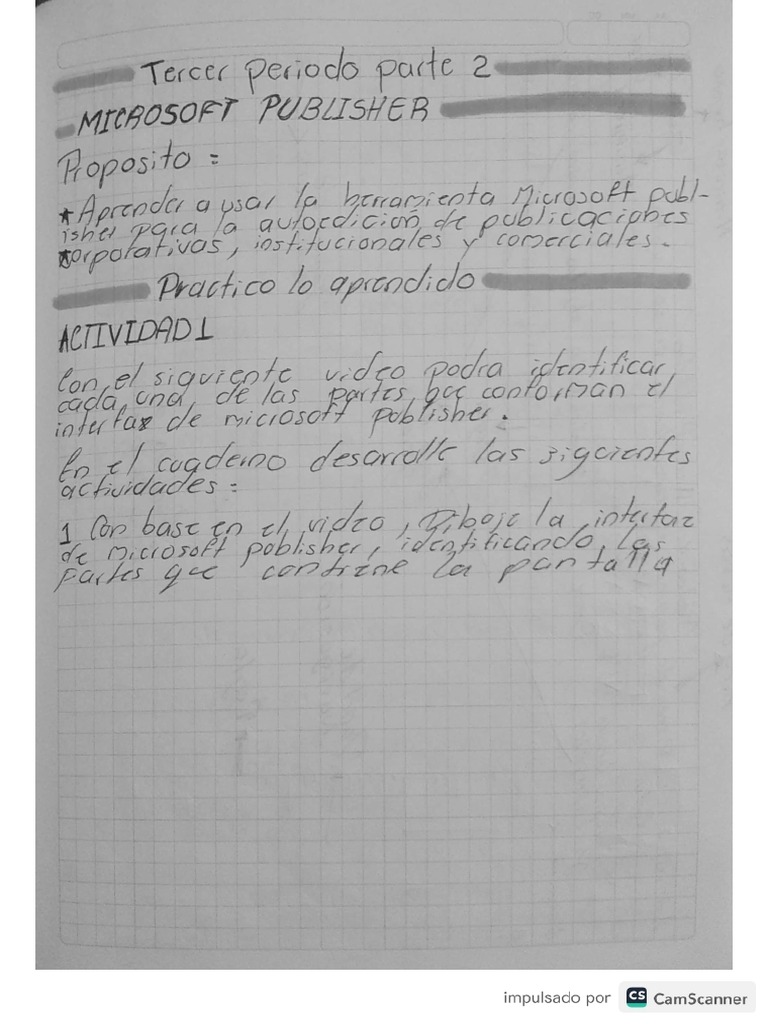 Tercer periodo parte 2
MICROSOFT PUBLISHER
Proposito =
*Aprender a usar la herramienta Microsoft publ-
isher para la autoedición de publicaciones
*corporativas, institucionales y comerciales.
Practico lo aprendido
ACTIVIDAD 1
Con el siguiente video podra identificar
cada una de las partes que conforman el
interfaz de microsoft publisher.
En el cuaderno desarrolle las siguientes
actividades =
1 Con base en el video, Dibuje la interfaz
de microsoft publisher, identificando las
Partes que contiene la pantalla
impulsado por CS CamScanner